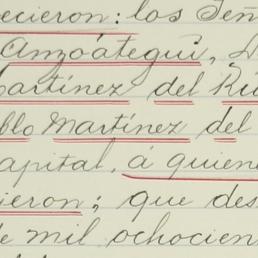 ecieron: los Señ
Anzoátegui, D
Martínez del Rí
blo Martínez del
apital, á quiene
ieron; que des
de mil ochocien